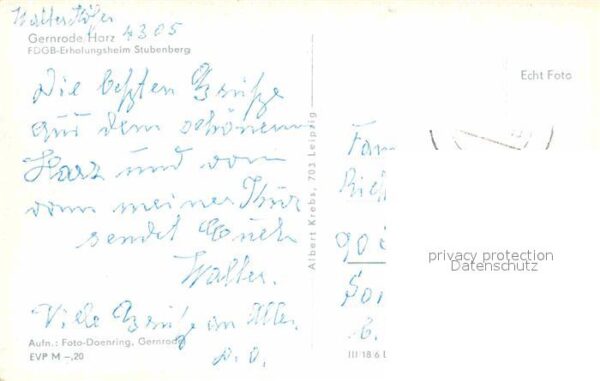 Walter
4305
Gernrode/Harz
FDGB-Erholungsheim Stubenberg
Die besten Grüße
aus dem schönen
Harz und von
meiner Kur
sendet Euch
Walter.
Viele Grüße an Alle.
D. O.
Aufn.: Foto-Doenring, Gernrode
EVP M -,20
Albert Krebs, 703 Leipzig
Echt Foto
Fam
90
privacy protection
Datenschutz
III 18 6 L